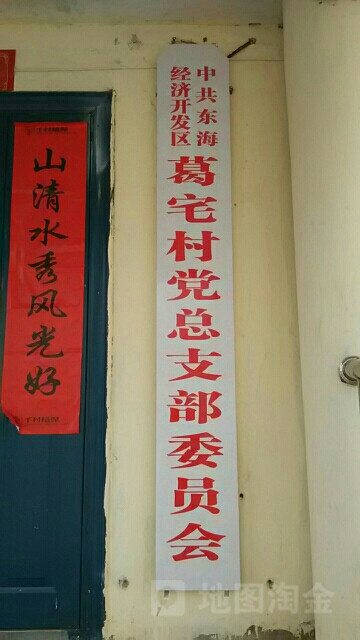 中共东海
经济开发区
葛宅村党总支部委员会
山清水秀风光好
地图淘金